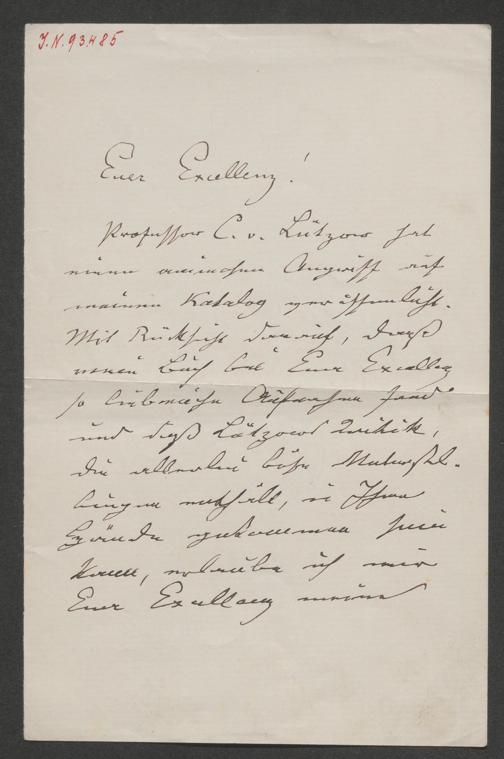 J.N. 93485
Euer Excellenz!
Professor C. v. Lützow hat
einen Angriff auf
meinen Katalog veröffentlicht.
Mit Rücksicht darauf, daß
mein Buch bei Euer Excellenz
so liebreiche Aufnahme fand
und daß Lützows Kritik,
die allerlei böse Unterstel-
lungen enthält, in Ihre
Hände gekommen sein
kann, erlaube ich mir
Euer Excellenz meine